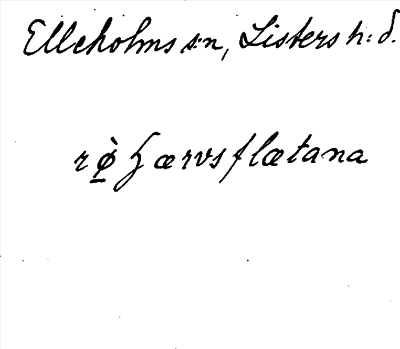 Elleholms s:n, Listers h:d.
rø̱̀ʒærvsflætana